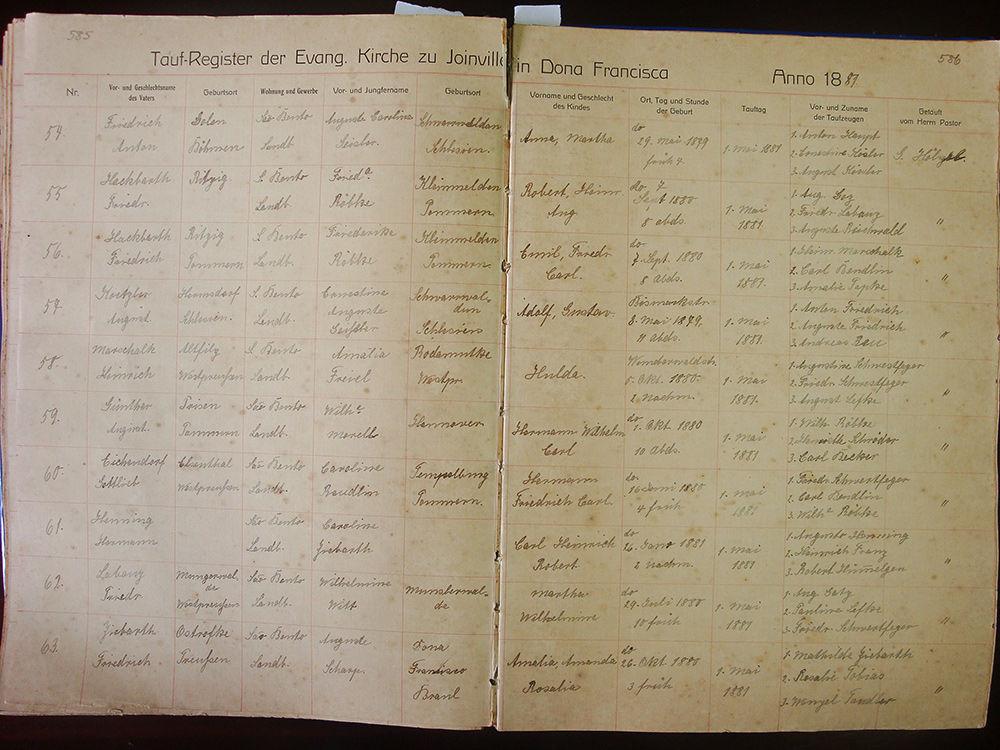 585
586
Tauf-Register der Evang. Kirche zu Joinville in Dona Francisca
Anno 1881
Nr.
Vor- und Geschlechtsname des Vaters
Geburtsort
Wohnung und Gewerbe
Vor- und Jungfername
Geburtsort
Vorname und Geschlecht des Kindes
Ort, Tag und Stunde der Geburt
Tauftag
Vor- und Zuname der Taufzeugen
Getauft vom Herrn Pastor
54.
Friedrich Anton
Böhmen
São Bento Landb.
Auguste Caroline
Schlesien.
Anna, Martha
do 29. Mai 1879 früh 4.
1. Mai 1881
1. Anton Haupt
3. August
55
Hackbarth Friedr.
Ritzig
S. Bento Landb.
Fried.a Röbke
Kleinmelden Pommern
Robert, Heinr. Aug
do 7 Sept 1880 8 abds
1. Mai 1881.
1. Aug.
2. Friedr. Labanz
3. Auguste
"
56.
Hackbarth Friedrich
Ritzig Pommern
S. Bento Landb.
Friederike Röbke
Kleinmelden Pommern
Emil, Friedr. Carl.
do 7. Sept. 1880 8 Abds.
1. Mai 1881.
1. Heinr. Marschalk
2. Carl Bendlin
3. Amalie Tapke
"
57.
August
Hermsdorf Schlesien.
S. Bento Landb.
Ernestine Auguste
Schlesiens
Adolf, Gustav.
Bismarkstr. 8. Mai 1879. 11 abds.
1. Mai 1881.
1. Anton Friedrich
2. Auguste Friedrich
3. Andreas Rau
"
58.
Marschalk Heinrich
Altfitz Westpreußen
S. Bento Landb.
Amalia
Westpr.
Hulda.
5. Okt. 1880. 2 Nachm.
1. Mai 1881.
1. Augustine Schwestfeger
2. Friedr. Schwestfeger
3. August Lefke
"
59.
Günther August.
Pommern
São Bento Landb.
Wilh.e
Hannover
Hermann Wilhelm Carl
do 1. Okt 1880 10 Abds.
1. Mai 1881
1. Wilh. Röbke
2. Henriette Schröder
3. Carl Becker
"
60.
Eichendorf Gottlieb
Westpreußen
São Bento Landb.
Caroline Bendlin
Tempelburg Pommern.
Hermann Friedrich Carl.
do. 16 Juni 1880 4 früh
1. Mai 1881
1. Friedr. Schwertfeger
2. Carl Bendlin
3. Wilh.e Röbke
"
61.
Henning Hermann
São Bento Landb.
Caroline Ziebarth
Carl Heinrich Robert
do 26. Janr 1881 2 nachm.
1. Mai 1881
1. Auguste Henning
2. Heinrich Franz
3. Robert Himmelgen
"
62.
Labanz Friedr.
Westpreußen
São Bento Landb.
Wilhelmine Witt
Munsterwalde
Martha Wilhelmine
do 29. Juli 1880 10 früh
1. Mai 1881
1. Aug. Satz
2. Pauline Lefke
3. Friedr. Schwertfeger
"
63.
Ziebarth Friedrich
Ostrofke Preußen
São Bento Landb.
Auguste
Dona Francisco Brasil
Amalia, Amanda Rosalia
do 26. Okt. 1880 3 früh
1. Mai 1881
1. Mathilde Ziebarth
2. Rosalie Tobias
3. Wenzel Tandler
"